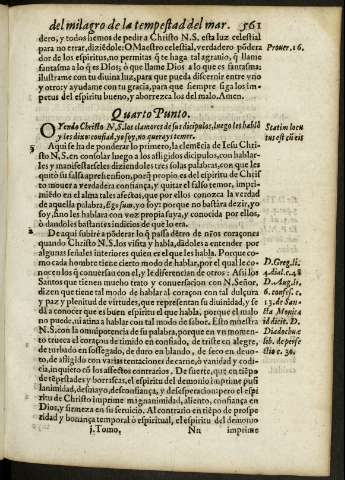 del milagro de la tempestad del mar. 561
dero, y todos hemos de pedir a Christo N.S. esta luz celestial
para no errar, diziẽdole: O Maestro celestial, verdadero põde
dor de los espiritus, no permitas q̃ te haga tal agrauio, q̃ llame
fantasma a lo q̃ es Dios; ò que llame Dios a lo que es fantasma:
ilustrame con tu diuina luz, para que pueda discernir entre vno
y otro: y ayudame con tu gracia, para que siempre siga los im-
petus del espiritu bueno, y aborrezca los del malo. Amen.
Prouer. 16.
Quarto Punto.
OYendo Christo N.S. los clamores de sus dicipulos, luego les hablò
y les dixo: confiad, yo soy, no querays temer.
Statim locu
tus est cũ eis
Aqui se ha de ponderar lo primero, la clemẽcia de Iesu Chri-
sto N.S. en consolar luego a los afligidos dicipulos, con hablar-
les y manifestarseles diziendoles tres solas palabras, con que les
quitò su falsa aprehension, porq̃ propio es del espiritu de Christo
mouer a verdadera confiança, y quitar el falso temor, impri-
miẽdo en el alma tales afectos, que por ellos conozca la verdad
de aquella palabra, Ego sum, yo soy: porque no bastàra dezir, yo
soy, sino les hablara con voz propia suya, y conocida por ellos,
ò dandoles bastantes indicios de que lo era.
De aqui subirè a põderar lo q̃ passa dẽtro de nr̃os coraçones
quando Christo N.S. los visita y habla, dãdoles a entender por
algunas señales interiores quien es el que les habla. Porque co-
mo cada hombre tiene cierto modo de hablar, por el qual le co-
nocen los q̃ conuersan con el, y le diferencian de otros: Assi los
Santos que tienen mucho trato y conuersacion con N. Señor,
dizen que tiene tal modo de hablar al coraçon con tal dulçura
y paz y plenitud de virtudes, que representan su diuinidad, y se
dà a conocer que es buen espiritu el que habla, porque el malo
no puede, ni atina a hablar con tal modo de sabor. Esto muestra
N.S. con la omnipotencia de su palabra, porque en vn momen-
to trueca el coraçon de timido en confiado, de triste en alegre,
de turbado en sossegado, de duro en blando, de seco en deuo-
to, de afligido con varias tentaciones de carne, ò vanidad, y codi-
cia, inquieto cõ los afectos contrarios. De suerte, que en tiẽpo
de tẽpestades y borrascas, el espiritu del demonio imprime pusi
lanimidad, desmayo, desconfiança, y desesperacion: pero el espi
ritu de Christo imprime magnanimidad, aliento, confiança en
Dios, y firmeza en su seruicio. Al contrario en tiẽpo de prospe-
ridad y bonança temporal ò espiritual, el espiritu del demonio
D. Greg. li.
4. dial. c. 48
D. Aug. li.
6. confes. c.
13. de San-
ta Monica
id dicit. D.
Diadochus
lib. de perfe
ctio c. 30.
j. Tomo, Nn imprime